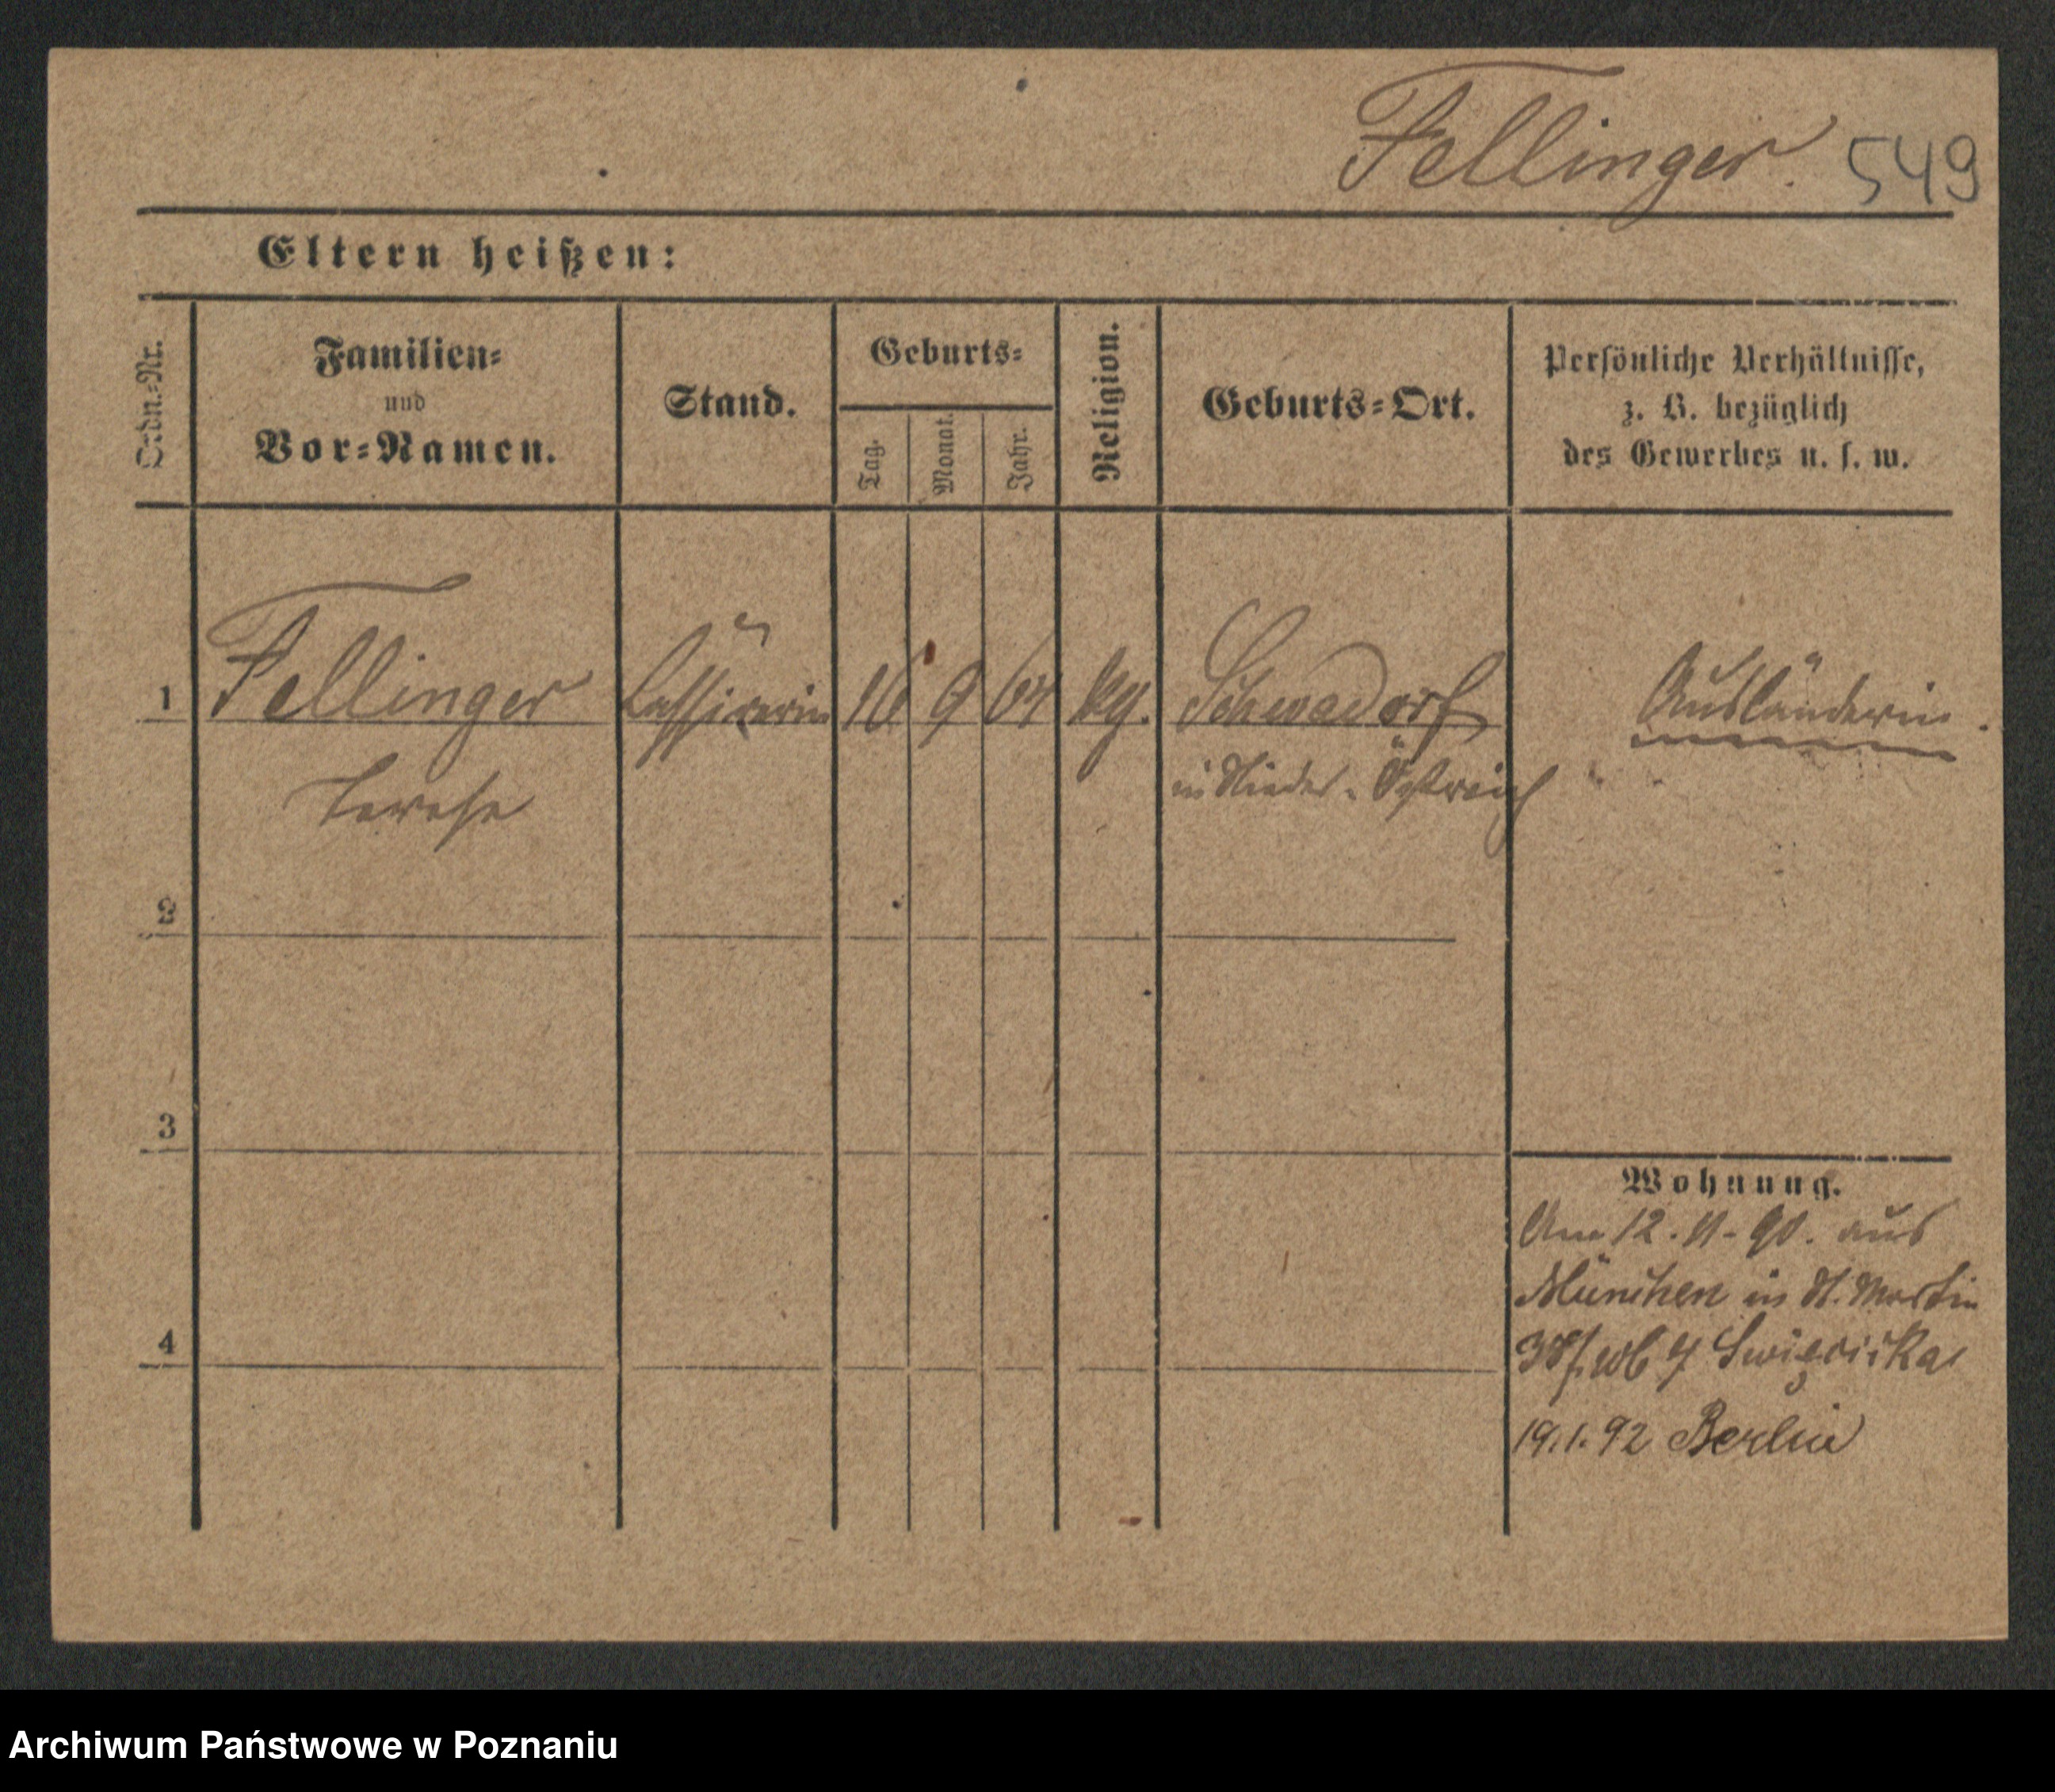 Fellinger. 549
Eltern heißen:
Ordn.-Nr.
Familien-
und
Vor-Namen.
Stand.
Geburts-
Tag.
Monat.
Jahr.
Religion.
Geburts-Ort.
Persönliche Verhältnisse,
z. B. bezüglich
des Gewerbes u. s. w.
1 Fellinger 16 9 64 Schwadorf Ausländerin.
Terese in Nieder-Östreich
2
3
4
Wohnung.
Am 12. 11. 90. aus
München in St. Martin
19.1.92 Berlin
Archiwum Państwowe w Poznaniu